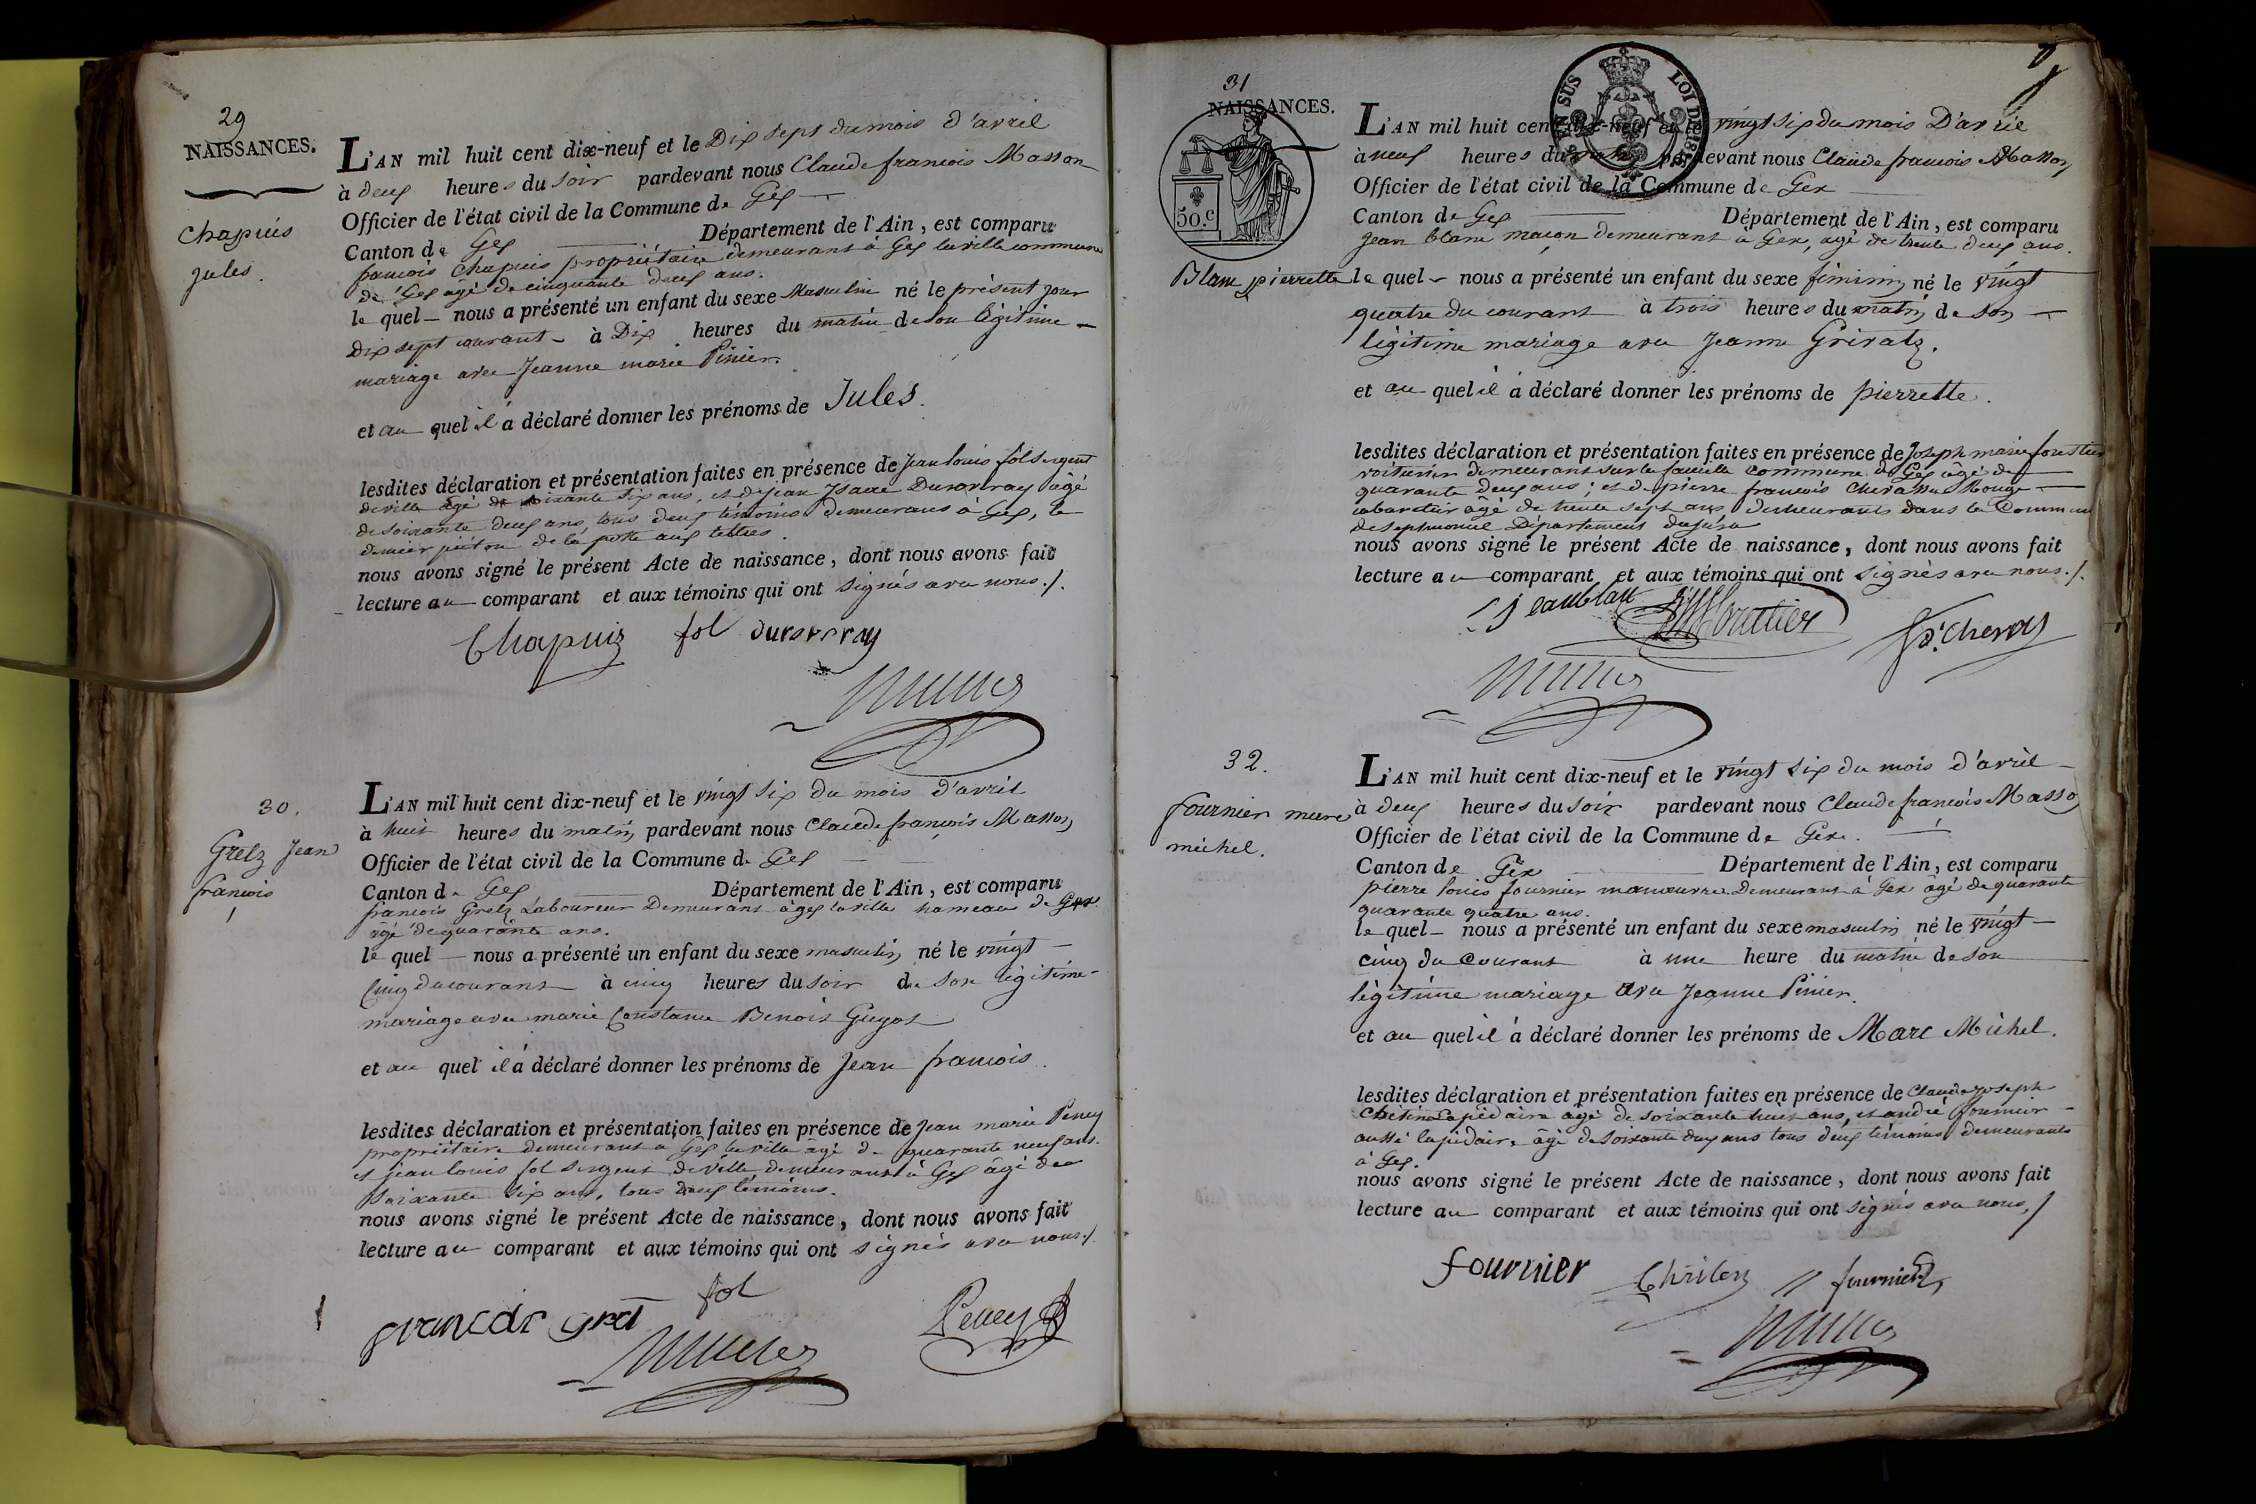 29
NAISSANCES.
Chapuis
jules.
L'AN mil huit cent dix-neuf et le Dix sept du mois d'avril
à deux heures du soir pardevant nous Claude francois Masson
Officier de l'état civil de la Commune de Gex
Canton de Gex Département de l'Ain, est comparu
francois Chapuis propriétaire demeurant à Gex la ville commune
de Gex agé de cinquante deux ans.
le quel nous a présenté un enfant du sexe Masculin né le présent jour
Dix sept courant à Dix heures du matin de son légitime
mariage avec Jeanne marie Pinier.
et au quel il a déclaré donner les prénoms de Jules.
lesdites déclaration et présentation faites en présence de Jean louis fol sergent
de ville âgé de soixante six ans, et de jean Isaac Duroveray âgé
de soixante deux ans, tous deux témoins demeurans à Gex, le
dernier piéton de la poste aux lettres.
nous avons signé le présent Acte de naissance, dont nous avons fait
lecture au comparant et aux témoins qui ont signés avec nous./.
Chapuis fol duroveray
30.
Gretz Jean
francois
L'AN mil huit cent dix-neuf et le vingt six du mois d'avril
à huit heures du matin pardevant nous Claude françois Masson
Officier de l'état civil de la Commune de Gex
Canton de Gex Département de l'Ain, est comparu
francois Gretz Laboureur Demeurant à gex la ville hameau de Gex
âgé de quarante ans.
le quel nous a présenté un enfant du sexe masculin né le vingt
cinq du courant à cinq heures du soir de son légitime
mariage avec marie Constance Benoit Guyot
et au quel il a déclaré donner les prénoms de Jean francois.
lesdites déclaration et présentation faites en présence de Jean marie Peney
propriétaire demeurant à Gex la ville âgé de quarante neuf ans.
et jean louis fol sergent de ville demeurant à Gex âgé de
soixante six ans, tous deux témoins.
nous avons signé le présent Acte de naissance, dont nous avons fait
lecture au comparant et aux témoins qui ont signés avec nous./.
fol
francois gret Peney
31
NAISSANCES.
50.c
EN SUS LOI DE 1816
Blanc pierrette
L'AN mil huit cent dix-neuf et le vingt six du mois D'avril
à neuf heures du matin pardevant nous Claude francois Masson
Officier de l'état civil de la Commune de Gex
Canton de Gex Département de l'Ain, est comparu
Jean blanc maçon demeurant à Gex, âgé de trente deux ans.
le quel nous a présenté un enfant du sexe féminin né le vingt
quatre du courant à trois heures du matin de son
légitime mariage avec Jeanne Grivatz.
et au quel il a déclaré donner les prénoms de pierrette.
lesdites déclaration et présentation faites en présence de Joseph marie fournier
voiturier demeurant sur la faucille commune de Gex âgé de
quarante deux ans; et de pierre francois Chevassus Rouge
cabaretier âgé de trente sept ans demeurants dans la Commune
de Septmoncel Département du jura
nous avons signé le présent Acte de naissance, dont nous avons fait
lecture au comparant et aux témoins qui ont signés avec nous./.
jeanblan
32.
fournier marc
michel.
L'AN mil huit cent dix-neuf et le vingt six du mois d'avril
à deux heures du soir pardevant nous Claude françois Masson
Officier de l'état civil de la Commune de Gex.
Canton de Gex Département de l'Ain, est comparu
pierre louis fournier manoeuvre demeurant à Gex âgé de quarante
quarante quatre ans.
le quel nous a présenté un enfant du sexe masculin né le vingt
cinq du Courant à une heure du matin de son
légitime mariage avec Jeanne Pinier.
et au quel il a déclaré donner les prénoms de Marc Michel.
lesdites déclaration et présentation faites en présence de Claude joseph
lapidaire âgé de soixante huit ans, et andré fournier
aussi lapidaire âgé de soixante deux ans tous deux témoins demeurants
à Gex.
nous avons signé le présent Acte de naissance, dont nous avons fait
lecture au comparant et aux témoins qui ont signés avec nous./
fournier fournier